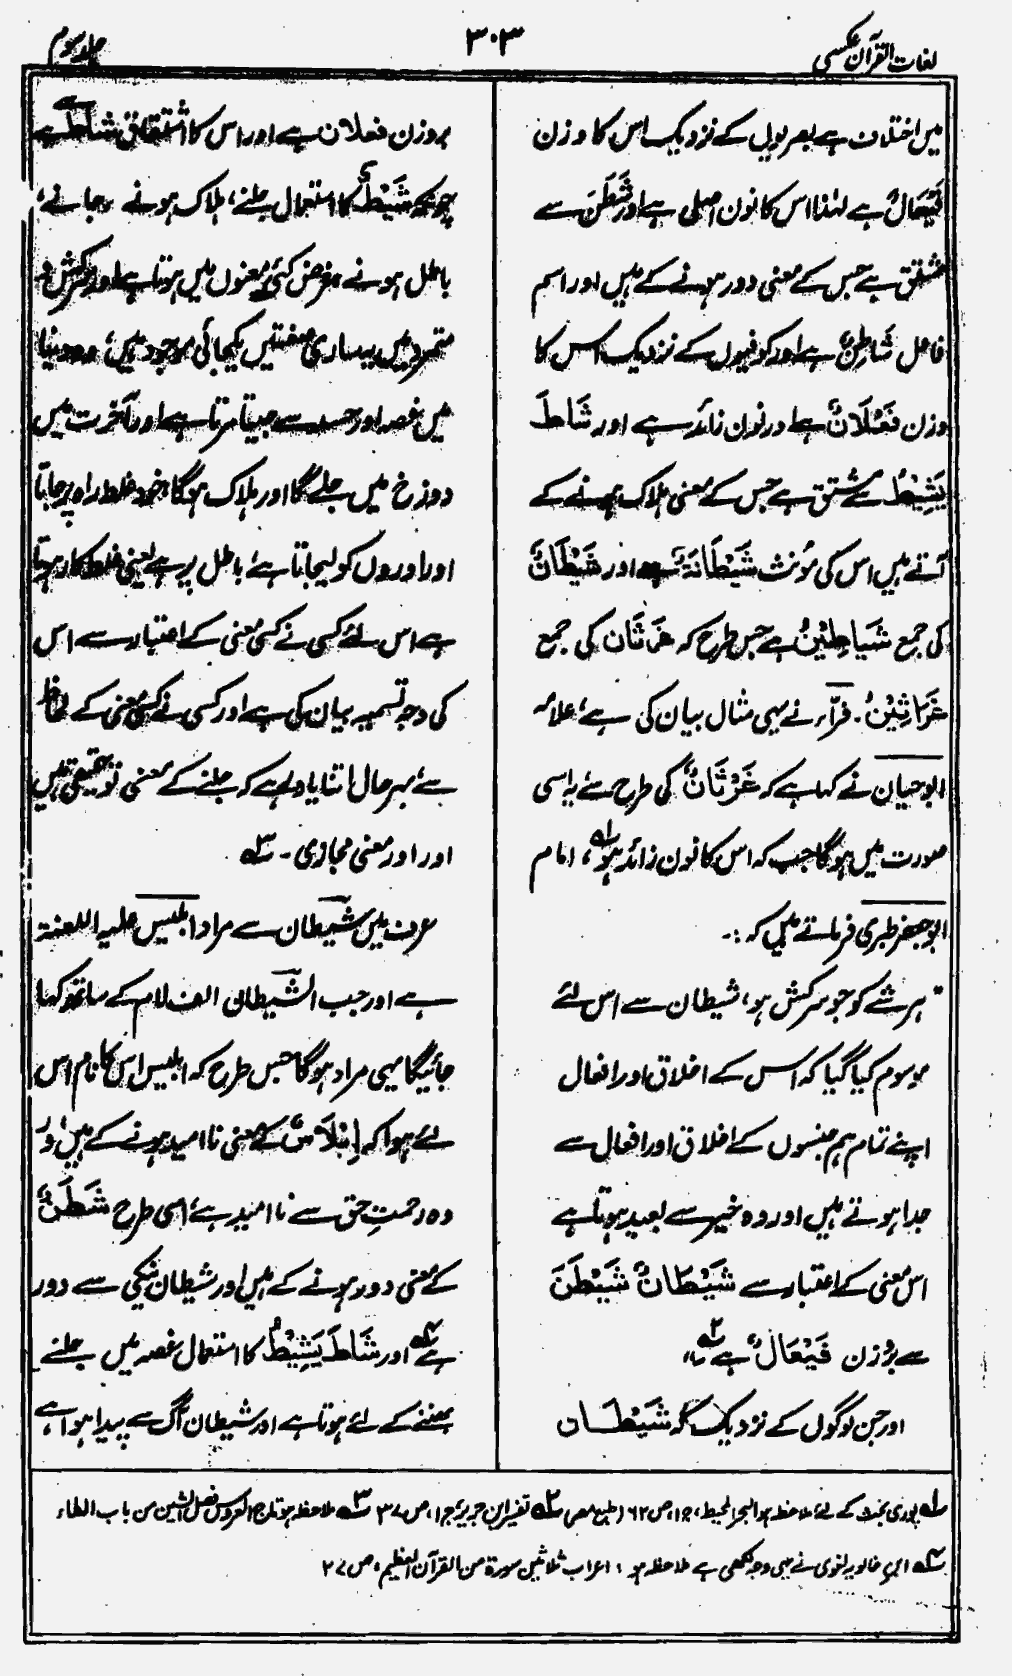 لغات القرآن عکسی
۳۰۳
جلد سوم
میں اختلاف ہے بصریوں کے نزدیک اس کا وزن
فَیْعَالٌ ہے لہٰذا اس کا نون اصلی ہے اور شَطَنَ سے
مشتق ہے جس کے معنی دور ہونے کے ہیں اور اسم
فاعل شَاطِنٌ ہے اور کوفیوں کے نزدیک اس کا
وزن فَعْلَانٌ ہے اور نون زائد ہے اور شَاطَ
یَشِیْطُ سے مشتق ہے جس کے معنی ہلاک ہونے کے
آتے ہیں اس کی مؤنث شَیْطَانَۃٌ ہے اور شَیْطَانٌ
کی جمع شَیَاطِیْنُ ہے جس طرح کہ غَرْثَان کی جمع
غَرَاثِیْنُ۔ فرّاء نے یہی مثال بیان کی ہے، علامہ
ابوحیان نے کہا ہے کہ غَرْثَانٌ کی طرح سے یہ اسی
صورت میں ہوگا جب کہ اس کا نون زائد ہو ۱ے، امام
ابوجعفر طبری فرماتے ہیں کہ :۔
" ہر شے کو جو سرکش ہو، شیطان سے اس لئے
موسوم کیا گیا کہ اس کے اخلاق اور افعال
اپنے تمام ہم جنسوں کے اخلاق اور افعال سے
جدا ہوتے ہیں اور وہ خیر سے بعید ہوتا ہے
اس معنی کے اعتبار سے شَیْطَانٌ شَیْطَنَ
سے بروزن فَیْعَالٌ ہے ۲ے"
اور جن لوگوں کے نزدیک کہ شَیْطَان
بروزن فعلان ہے اور اس کا اشتقاق شاط سے ہے
چونکہ شَیْطٌ کا استعمال جلنے، ہلاک ہونے، جانے،
باطل ہونے، غرض کئی معنوں میں ہوتا ہے اور سرکش و
متمرد میں یہ ساری صفتیں یکجائی موجود ہیں، وہ دنیا
میں غصہ اور حسد سے جیتا مرتا ہے اور آخرت میں
دوزخ میں جلے گا اور ہلاک ہوگا، خود غلط راہ پر جاتا
اور اوروں کو لیجاتا ہے، باطل پر ہے یعنی غلط کار ہوتا
ہے اس لئے کسی نے کسی معنی کے اعتبار سے اس
کی وجہ تسمیہ بیان کی ہے اور کسی نے کسی معنی کے لحاظ
سے، بہر حال اتنا یاد رہے کہ جلنے کے معنی تو حقیقی ہیں
اور اور معنی مجازی۔ ۳ے
عرف میں شیطان سے مراد ابلیس علیہ اللعنۃ
ہے اور جب الشّیطان الف لام کے ساتھ کہا
جائیگا یہی مراد ہوگا جس طرح کہ ابلیس اس کا نام اس
لئے ہوا کہ اِبْلَاسٌ کے معنی ناامید ہونے کے ہیں، اور
وہ رحمتِ حق سے ناامید ہے، اسی طرح شَطَنٌ
کے معنی دور ہونے کے ہیں اور شیطان نیکی سے دور
ہے ۴ے اور شَاطَ یَشِیْطُ کا استعمال غصہ میں جلنے
بھننے کے لئے ہوتا ہے اور شیطان آگ سے پیدا ہوا ہے
۱ے پوری بحث کے لئے ملاحظہ ہو البحر المحیط، ج۱، ص۶۲ (طبع مصر) ۲ے تفسیر ابن جریر، ج۱، ص۳۷ ۳ے ملاحظہ ہو تاج العروس فصل الشین من باب الطاء
۴ے ابن خالویہ لغوی نے یہی وجہ لکھی ہے ملاحظہ ہو : اعراب ثلاثین سورۃ من القرآن العظیم، ص۲۷